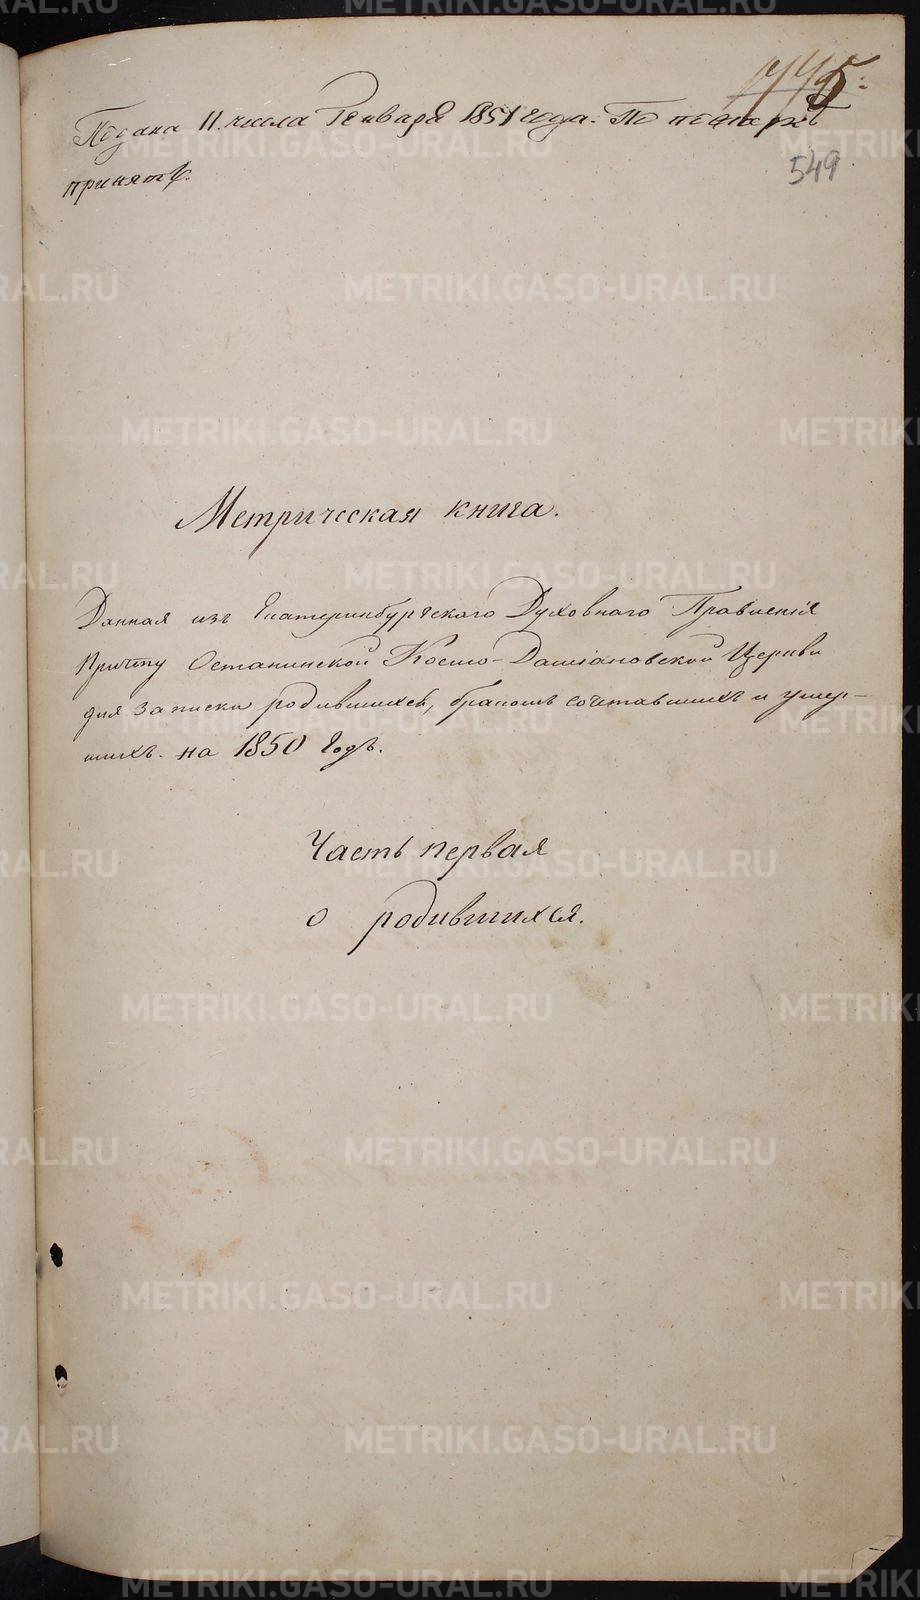 775
Подана 11. числа Генваря 1851 года. По
принять.
549
Метрическая книга.
Данная изъ Екатеринбургскаго Духовнаго Правленія
Причту Останинской Космо-Даміановской Церкви
для записки родившихся, бракомъ сочетавшихъ и умер-
шихъ. на 1850 Годъ.
Часть первая
о родившихся.
METRIKI.GASO-URAL.RU